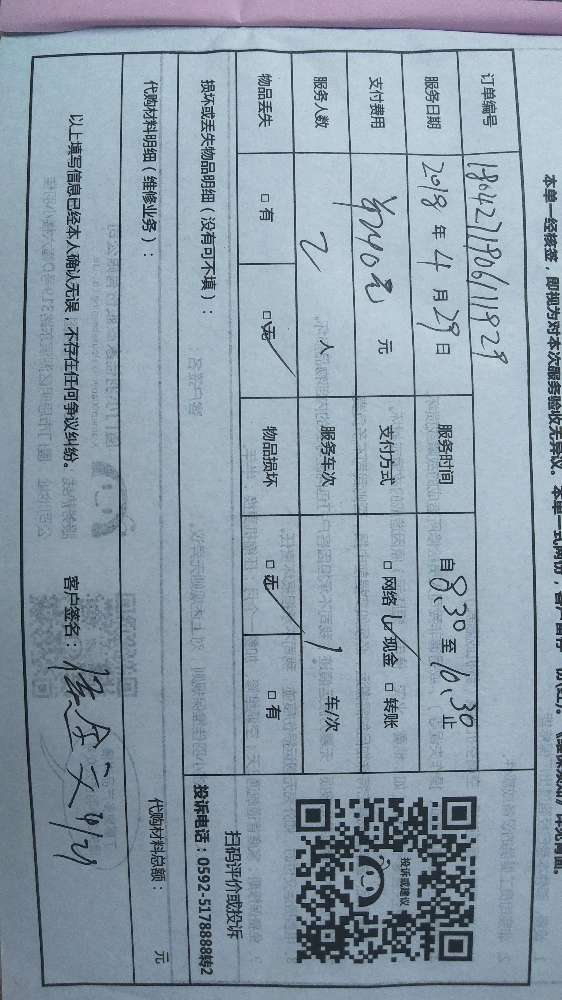 本单一经核签，即视为对本次服务验收无异议。本单一式两份，客户留存一份(
订单编号 1804271806111929
服务日期 2018年4月29日 服务时间 自8.30至10.30止
支付费用 740元 元 支付方式 □网络 ☑现金 □转账
服务人数 2人 服务车次 1车/次
物品丢失 □有 ☑无 物品损坏 ☑无 □有
损坏或丢失物品明细（没有可不填）：
投诉或建议
扫码评价或投诉
投诉电话：0592-5178888转2
代购材料明细（维修业务）： 代购材料总额： 元
以上填写信息已经本人确认无误，不存在任何争议纠纷。 客户签名： 4/29